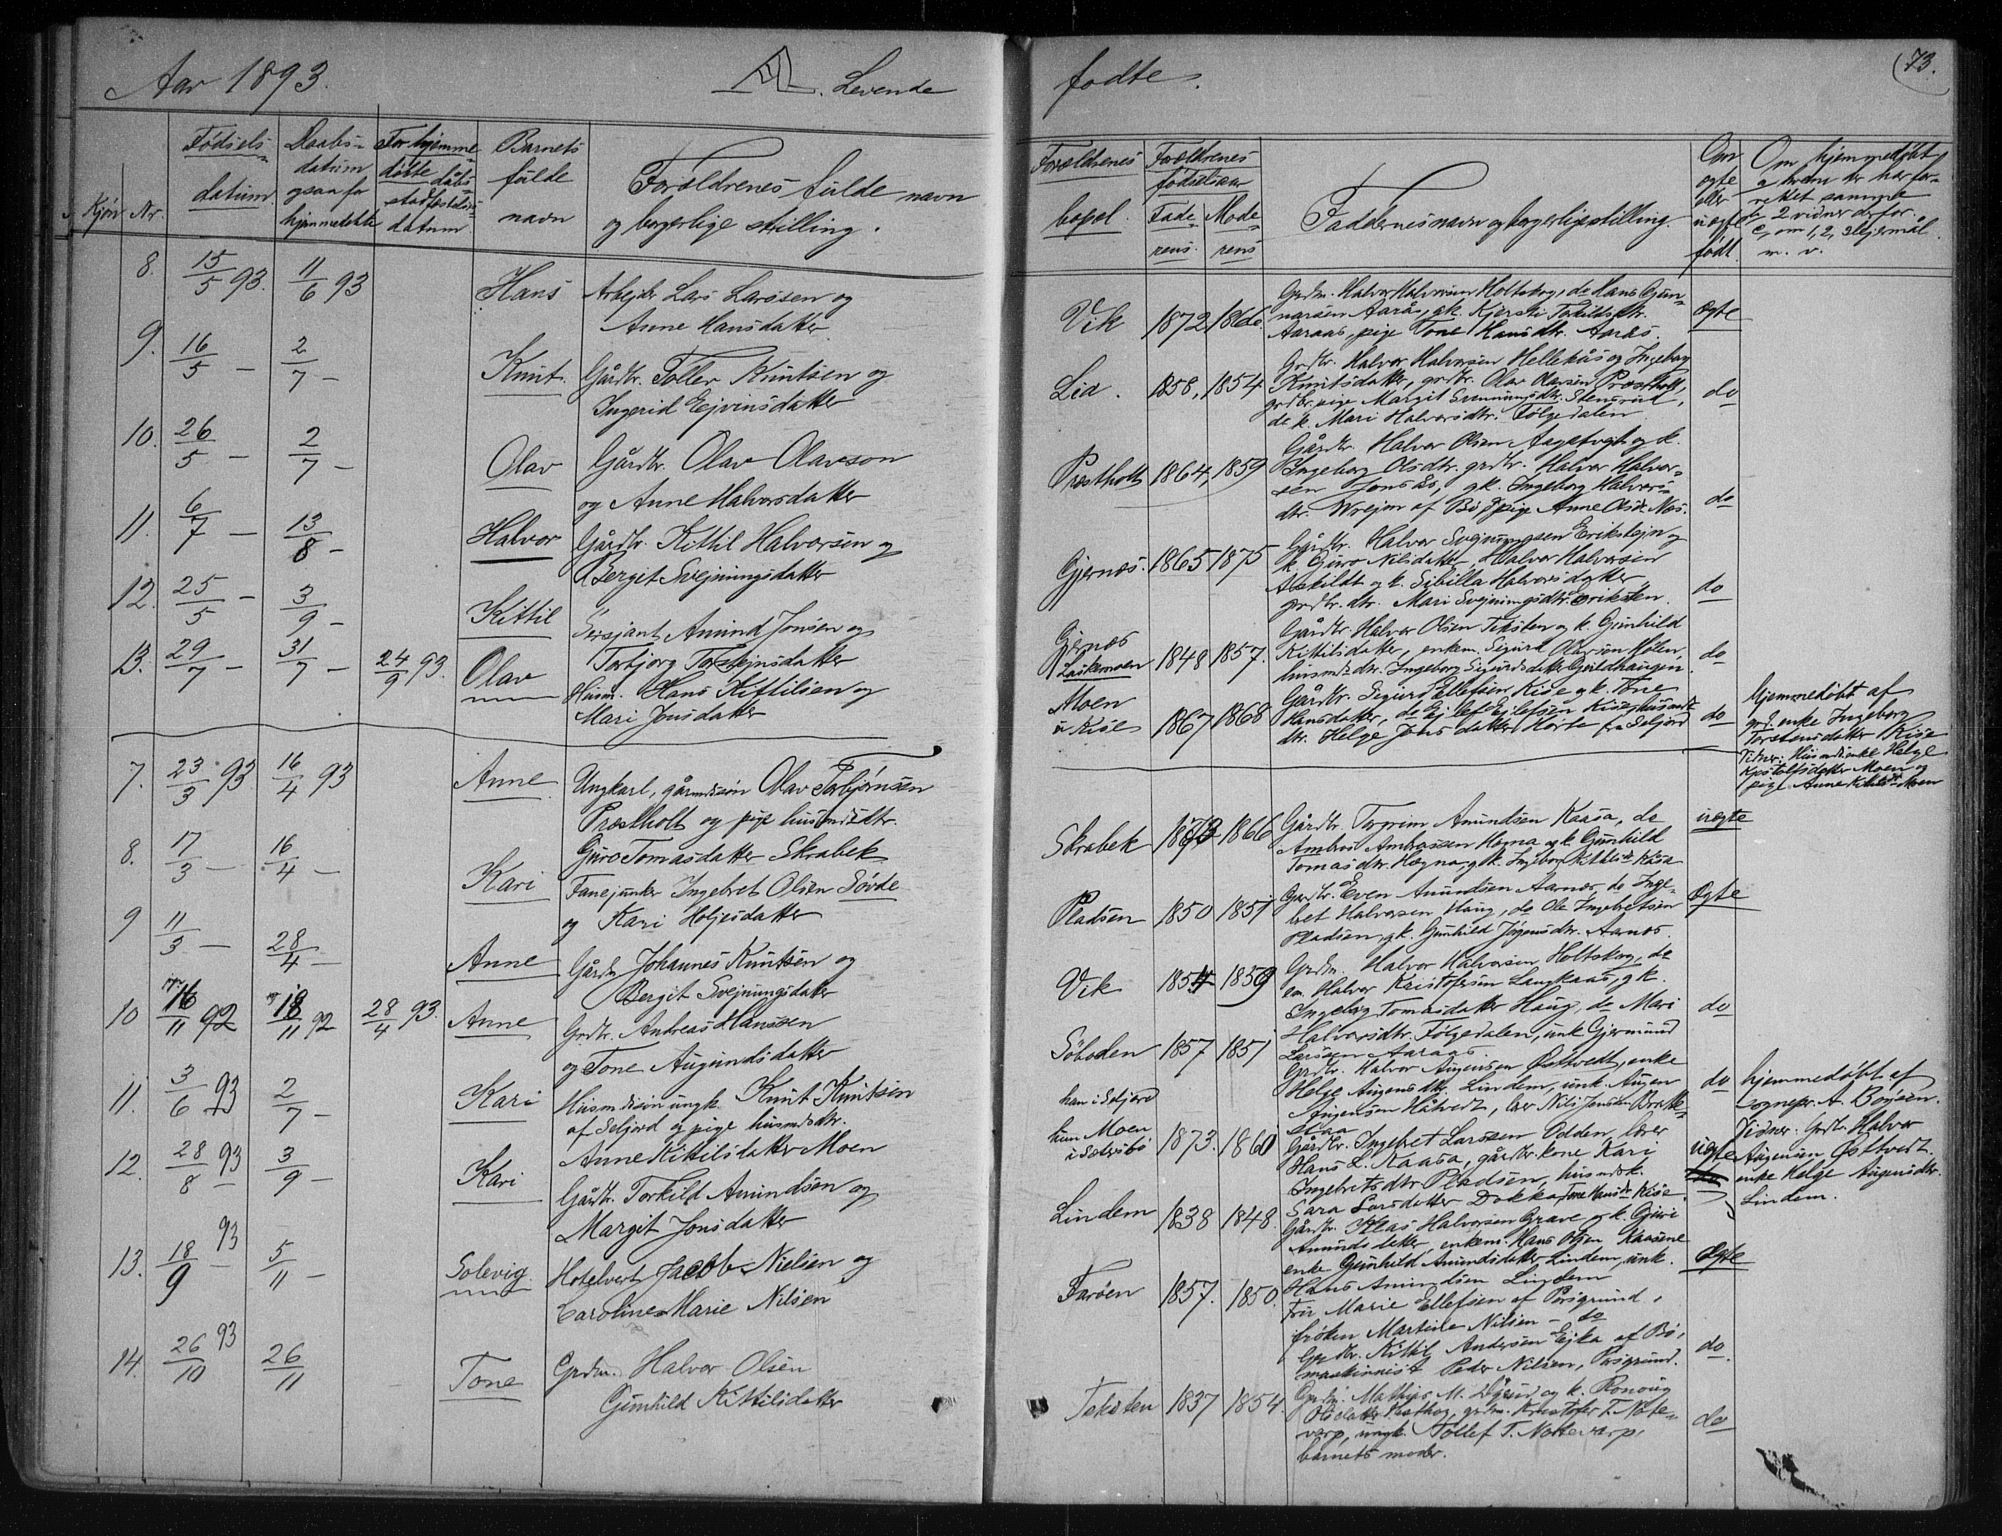 Aar 1893.
Levende
fødte.
(73.
Kjøn
Nr.
Fødsels-
datum
Daabs-
datum
ogsaa for
hjemmedøbte
For hjemme
døbte
datum
Barnets
fulde
navn
Forældrenes fulde navn
og borgerlige stilling.
Forældrenes
bopæl.
Forældrenes
fødselsaar
Fade-
rens.
Mode-
rens
Faddernes navn og borgerlige stilling.
Om
ægte
eller
uægte
født.
Om hjemmedøbt
m. v.
8.
15/5 93.
11/6 93
Hans
Arbejder Lars Larssen og
Anne Hansdatter
Vik
1872
1866.
Grdm. Halvor Halvorsen Holtskog, do Hans Gun-
narsen Aarås, gk. Kjersti
Aaraas, pige Tone Hansdtr. Aarås
Ægte
9.
16/5 –
2/7 –
Knut.
Gårdbr. Tollev Knutsen og
Ingerid Ejvinsdatter
Lid.
1858,
1854
Grdbr. Halvor Halvorsen Hellekås og Ingeborg
Knutsdatter, grdbr. Olav Olavsen Præstholt,
do k. Mari Halvorsdtr. Følgedalen
do
10.
26/5 –
2/7 –
Olav
Gårdbr. Olav Olavson
og Anne Halvorsdatter
Præstholt
1864,
1859
Gårdbr. Halvor Olsen
Ingeborg Olsdtr. grdbr. Halvor Halvor-
sen Jonsås, gk. Ingeborg Halvors-
dtr. af Bø, pige Anne Olsdtr Næs.
do
11.
6/7 –
13/8 –
Halvor
Gårdbr. Kittil Halvorsen og
Bergit Svejnungsdatter
Gjernæs.
1865
1875
Gårdbr. Halvor Svejnungsen Erikstejn og
k. Guro Nilsdatter, Halvor Halvorsen
Askildt og k. Sibilla Halvorsdatter
grdbr. dtr. Mari Svejnungsdtr.
do
12.
25/5 –
3/9 –
Kittil
Sersjant Amund Jonsen og
Torbjørg Torstejnsdatter
Gjernæs
1848
1857.
Gårdbr. Halvor Olsen Teksten og k. Gunhild
Kittilsdatter, enkem. Sigurd Olavson Hølen,
husmdsdtr. Ingeborg Sigurdsdatter
do
13.
29/7 –
31/7 –
24/9 93.
Olav
Husm. Hans Kittilsen og
Mari Jonsdatter
Moen
u. Kise
1867
1868
Gårdbr. Sigurd Ellefsen Kise gk. Tone
Hansdatter, do
dtr. Helge Jonsdatter fra Seljord
do
hjemmedøbt af
grd. enke Ingeborg
Torstensdatter Kise
Vidner: Husmdsenke Helge
Moen og
pige Anne Moen
7.
23/3 93
16/4 93
Anne
Ungkarl, gårmdssøn Olav Torbjørnsen
Præstholt og pige husmdsdtr.
Guro Tomasdatter Skrabek
Skrabek
1866
Gårdbr. Torgrim Amundsen Kaasa, do
Ambros Ambrossen Hægna gk. Gunhild
Tomasdtr. Hægna, gk. Ingeborg Kittilsdtr Kåsa
uægte
8.
17/3 –
16/4 –
Kari
Fanejunker Ingebret Olsen Søvde
og Kari Holjesdatter
Pladsen
1850
1851
Grdbr. Even Amundsen Aarnæs, do Inge-
bret Halvorsen Haug, do Ole Ingebretsen
Pladsen, gk. Gunhild Jørgensdtr. Aanæs.
Ægte
9
11/3 –
28/4 –
Anne
Gårdm Johannes Knutsen og
Bergit Svejnungsdatter
Vik
1854
1859
Grdm. Halvor Halvorsen Holtskog, do
em. Halvor Kristofersen Langkaas, gk.
Ingeborg Tomasdatter Haug, do Mari
Halvorsdtr. Følgedalen, unk. Gjermund
Larsen Aaraas
do
10
16/11 92
18/11 92
28/4 93.
Anne
Grdbr. Andreas Hanssen
og Tone Augundsdatter
Søboden
1857
1851
Grdbr. Halvor Augensen Østtvedt, enke
Helge Augensdtr. Lindem, unk. Augen
Augensen Håtvedt, lær Nils Jensen Brekke-
staa
do
hjemmedøbt af
sognepr. A. Bojesen.
Vidner: Grdbr. Halvor
Augensen Østtvedt,
enke Helge Augensdtr.
Lindem.
11.
3/6 93
2/7 –
Kari
Husmdssøn ungk. Knut Knutsen
af Seljord og pige husmdsdtr.
Anne Kittilsdatter Moen
han i Seljord
hun Moen
1873.
1860
Gårdbr. Ingebret Larssen Odden, lærer
Hans L. Kaasa, gårdbr. kone Kari
Ingebretsdtr Pladsen, husmdsk.
Sara Larsdatter Dokka, Tone Hansdtr Kise.
uægte
12.
28/8 93
3/9 –
Kari
Gårdbr. Torkild Amundsen og
Margit Jonsdatter
Lindem
1838
1848.
Gårdbr. Klas Halvorsen Grave og k. Guri
Amundsdatter, enkem. Hans Olsen Kaasene
enke Gunhild Amundsdatter Lindem, unk.
Hans Amundsen Lindem
Ægte
13.
18/9 93 –
5/11 –
Solevig.
Hotelvert Jacob Nielsen og
Caroline Marie Nilsen
Farøen
1857.
1850.
Fru Marie Ellefsen af Porsgrund,
frøken Martine Nilsen – do
Grdbr. Kittil Andersen Ejka af Bø,
maskinnist Peder Nilsen, Porsgrund.
do.
14.
26/10 93
26/11
Tone
Grdm. Halvor Olsen
Gunhild Kittilsdatter
Teksten
1837
1854.
Grdbr. Mathias M. og k. Ronoug
Olsdatter grdm. Kristofer T. Notte-
varp, ungk. Tollef T. Nottevarp,
barnets moder.
do